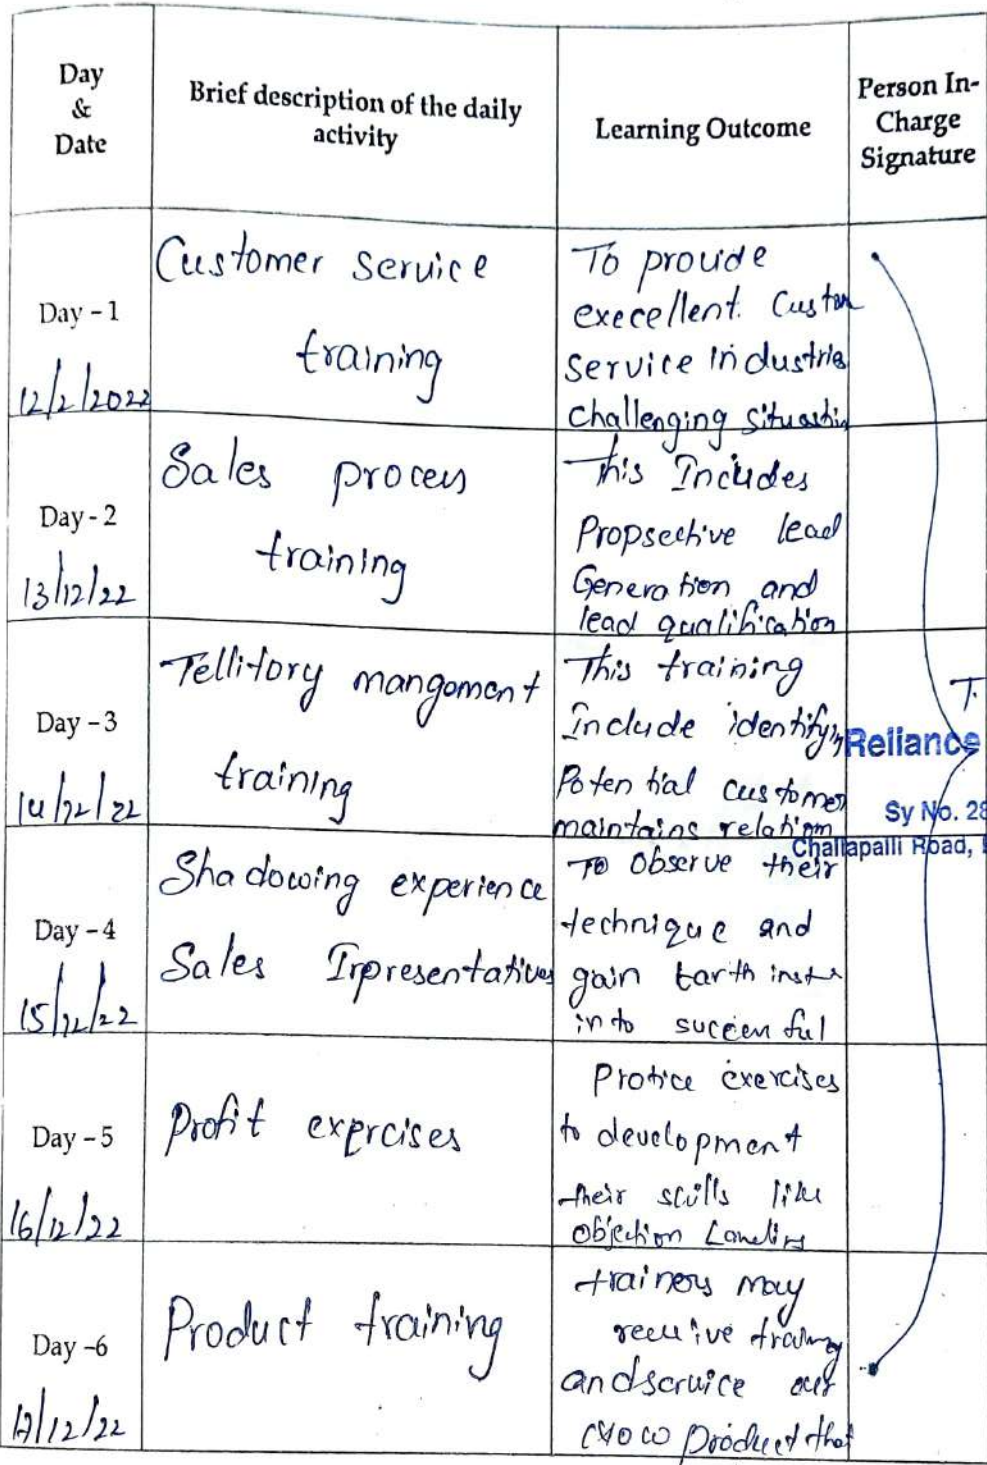 Day
&
Date
Brief description of the daily
activity
Learning Outcome
Person In-
Charge
Signature
Day - 1
12/2/2022
Customer service
training
To proude
execellent. Custom
Service industries
Challenging Situation
Day - 2
13/12/22
Sales process
training
This Includes
Propsective lead
Generation and
lead qualification
Day - 3
14/12/22
Tellitory mangoment
training
This training
Include identifying
Potential customer
maintains relation
T.
Reliance
Sy No. 28
Challapalli Road,
Day - 4
15/12/22
Shadowing experience
Sales Irpresentatives
To observe their
technique and
gain
into succenful
Day - 5
16/12/22
Profit exercises
Protice exercises
to development
their scills like
Objection
Day -6
17/12/22
Product training
trainers may
receive training
and service our
product that